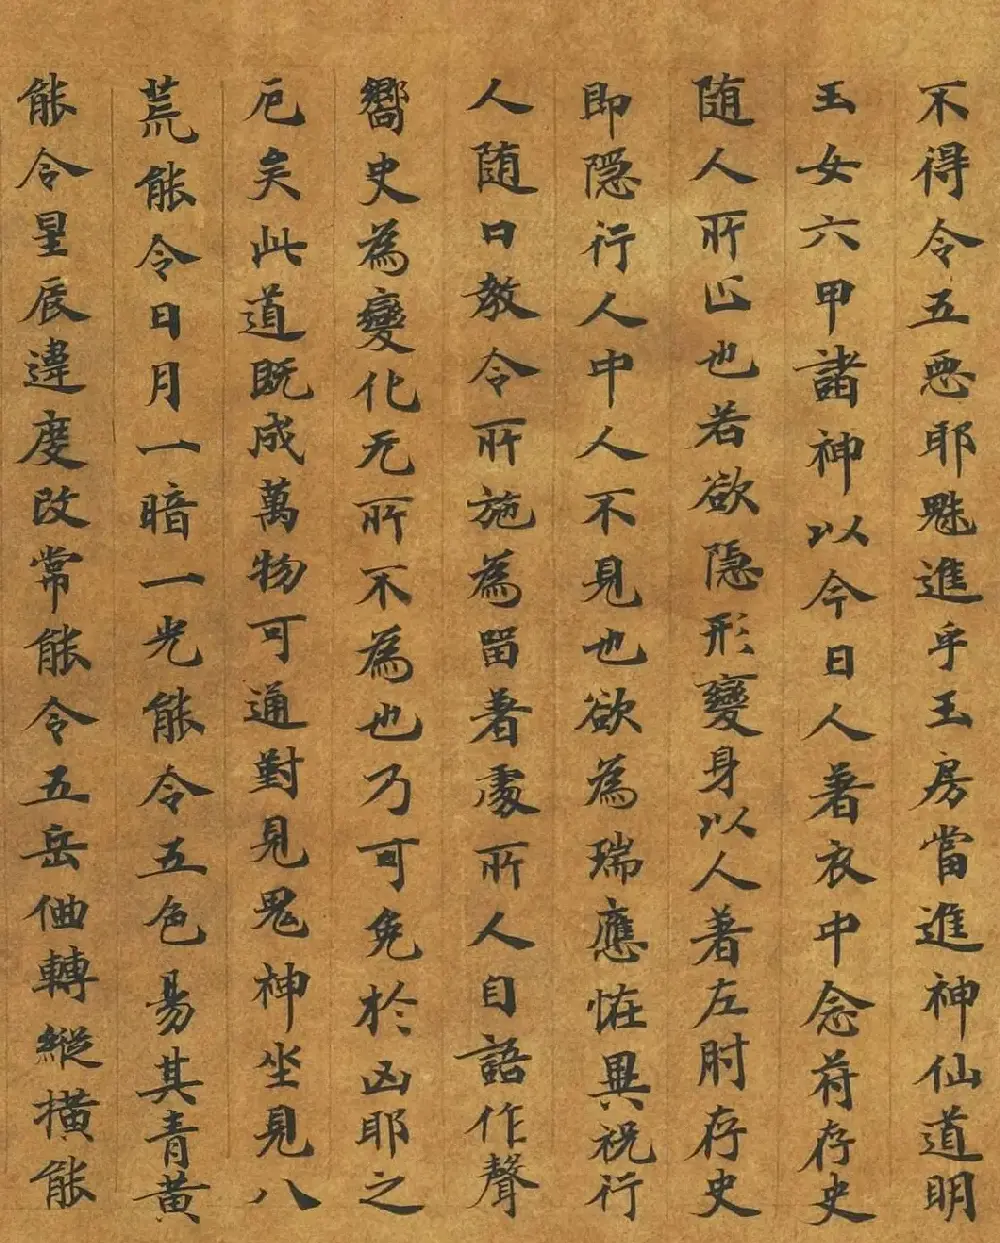 不得令五惡耶魅進乎玉房當進神仙道明
玉女六甲諸神以今日人著衣中念苻存史
随人所匠也若欲隠形變身以人著左肘存史
即隠行人中人不見也欲為瑞應恠異祝行
人随口教令所施為留著處所人自語作聲
嚮史為變化无所不為也乃可免於凶耶之
厄矣此道既成萬物可通對見鬼神坐見八
荒能令日月一暗一光能令五色易其青黃
能令星辰違度改常能令五岳伷轉縱橫能